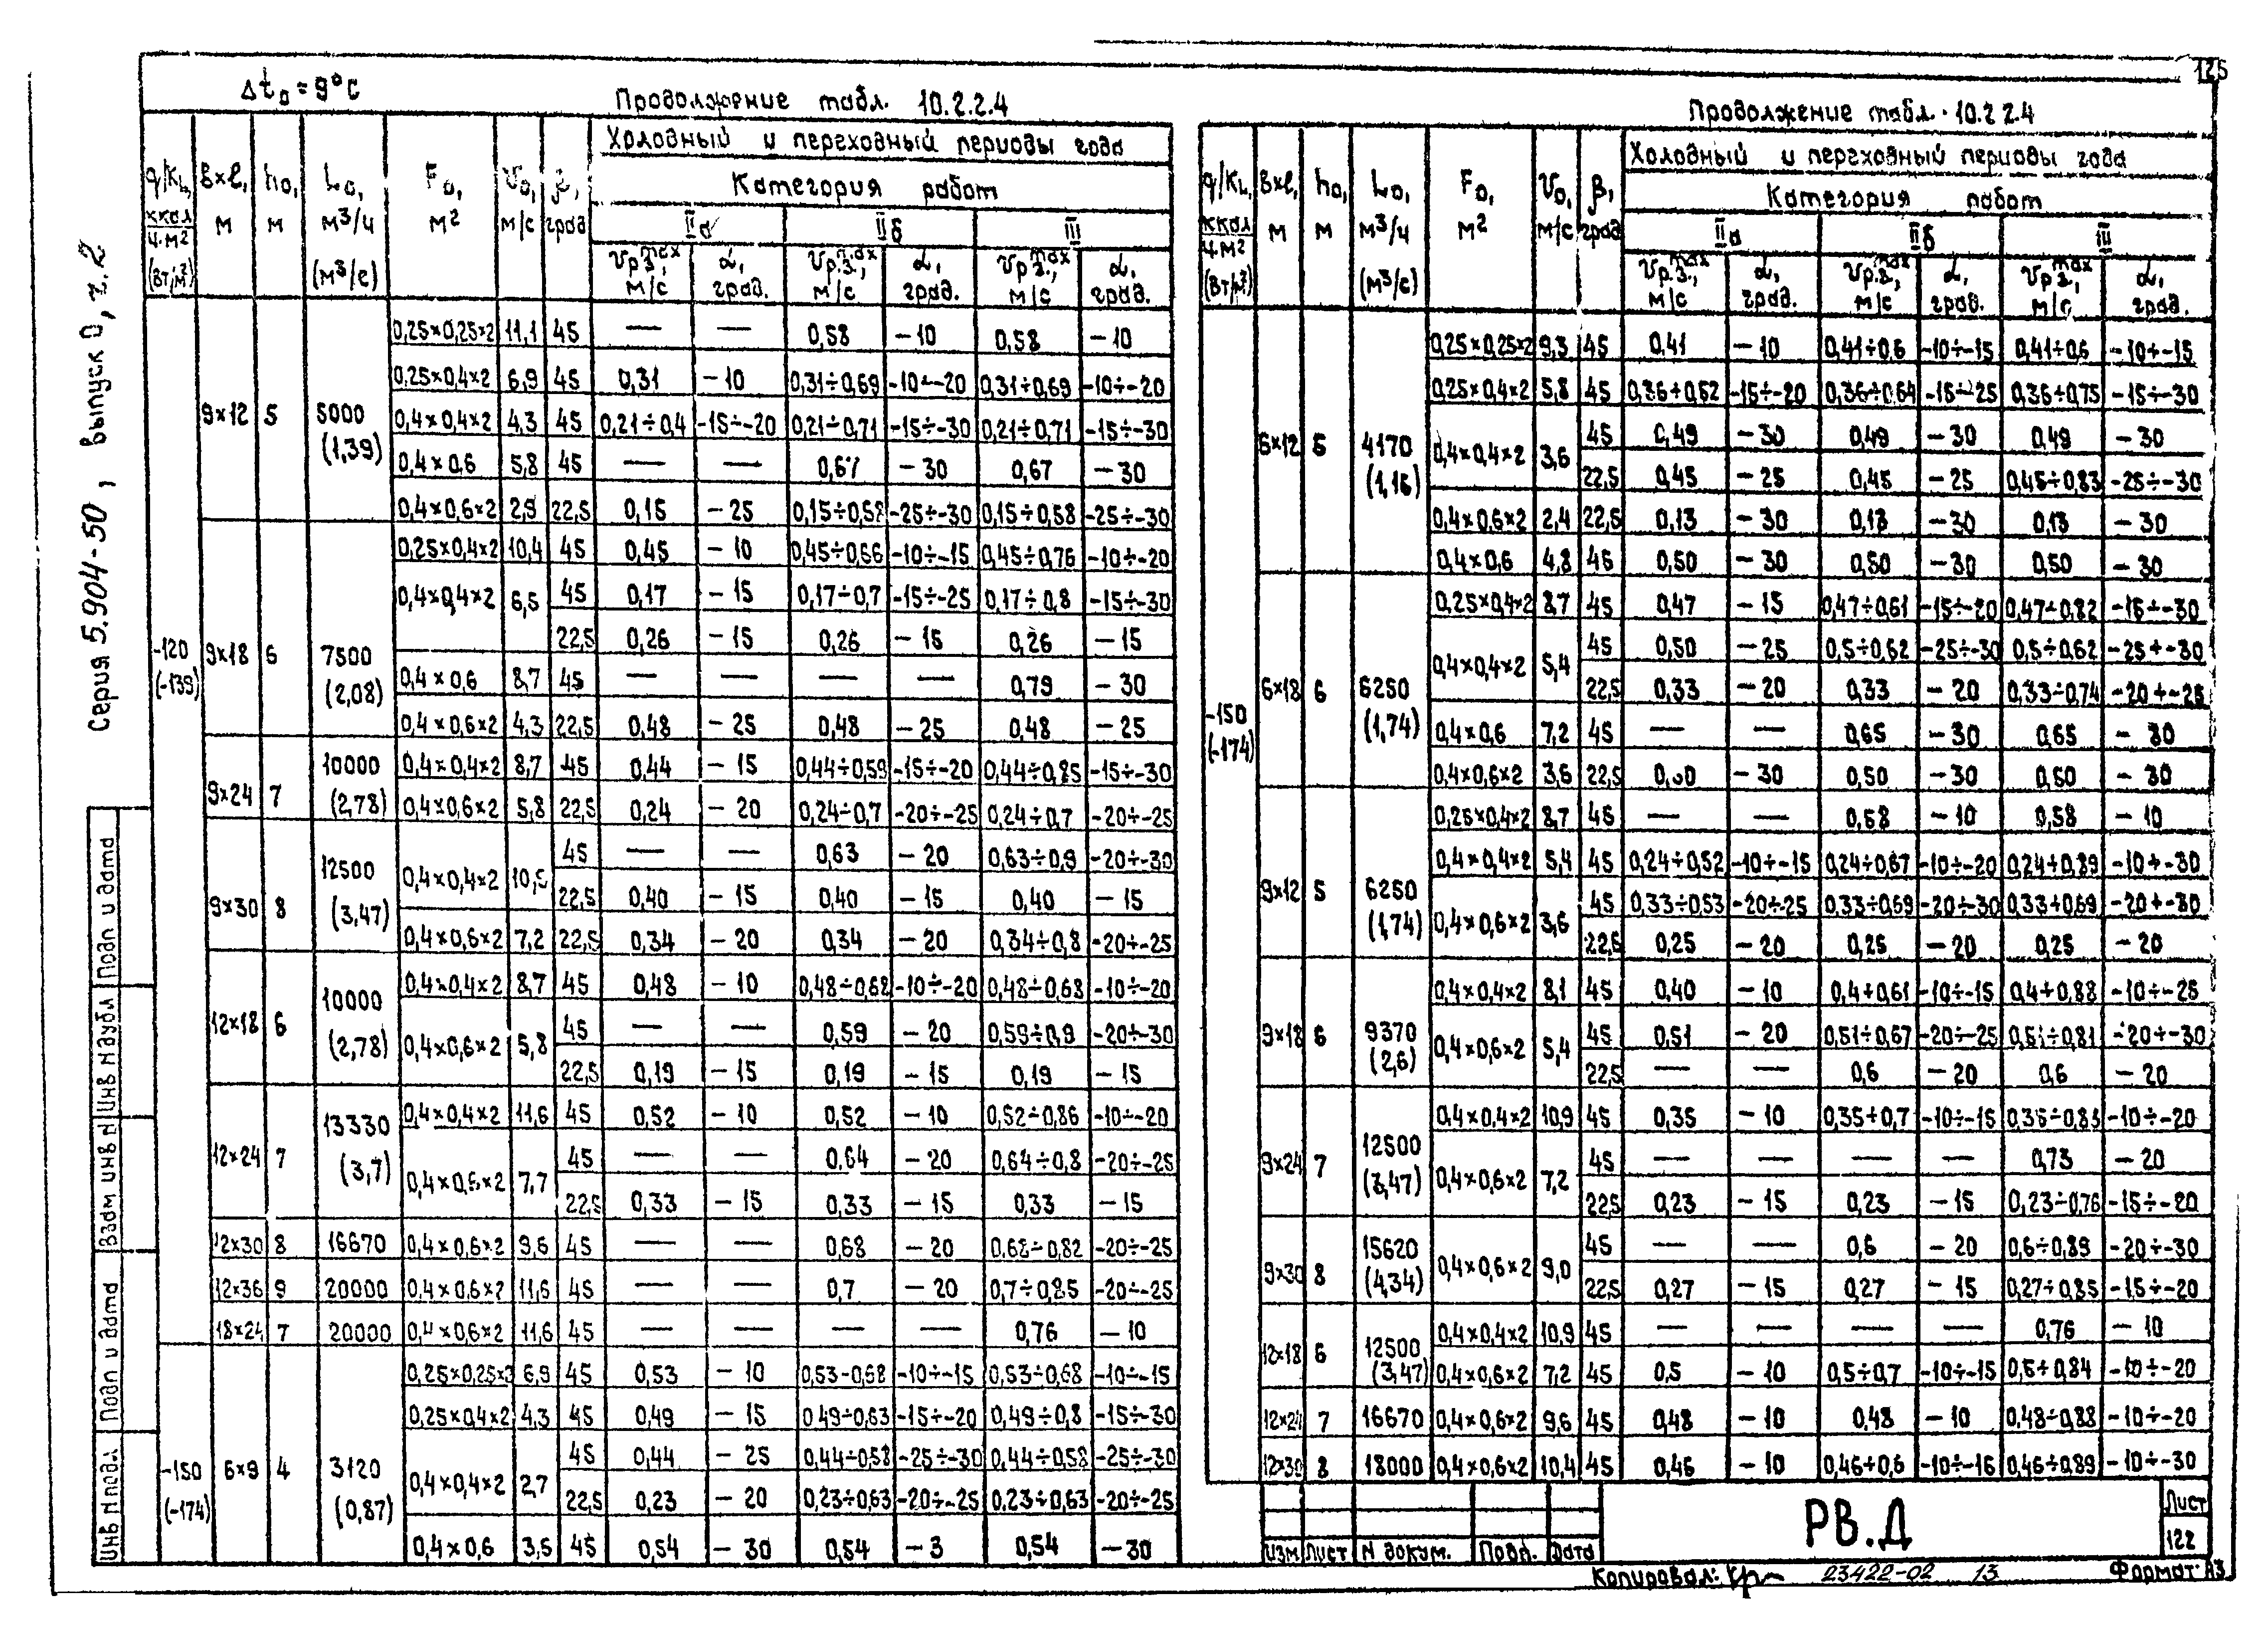 125
Δt₀ = 9°C
Продолжение табл. 10.2.2.4
Холодный и переходный периоды года
Категория работ
q/Kц, ккал/ч·м² (Вт/м²) | вхl, м | h₀, м | L₀, м³/ч (м³/с) | F₀, м² | v₀, м/с | β, град | IIа | IIб | III
vр.з.max, м/с | α, град. | vр.з.max, м/с | α, град. | vр.з.max, м/с | α, град.
-120 (-139)
9×12 | 5 | 5000 (1,39)
0,25×0,25×2 | 11,1 | 45 | — | — | 0,58 | -10 | 0,58 | -10
0,25×0,4×2 | 6,9 | 45 | 0,31 | -10 | 0,31÷0,69 | -10÷-20 | 0,31÷0,69 | -10÷-20
0,4×0,4×2 | 4,3 | 45 | 0,21÷0,4 | -15÷-20 | 0,21÷0,71 | -15÷-30 | 0,21÷0,71 | -15÷-30
0,4×0,6 | 5,8 | 45 | — | — | 0,67 | -30 | 0,67 | -30
0,4×0,6×2 | 2,9 | 22,5 | 0,15 | -25 | 0,15÷0,58 | -25÷-30 | 0,15÷0,58 | -25÷-30
9×18 | 6 | 7500 (2,08)
0,25×0,4×2 | 10,4 | 45 | 0,45 | -10 | 0,45÷0,66 | -10÷-15 | 0,45÷0,76 | -10÷-20
0,4×0,4×2 | 6,5 | 45 | 0,17 | -15 | 0,17÷0,7 | -15÷-25 | 0,17÷0,8 | -15÷-30
22,5 | 0,26 | -15 | 0,26 | -15 | 0,26 | -15
0,4×0,6 | 8,7 | 45 | — | — | — | — | 0,79 | -30
0,4×0,6×2 | 4,3 | 22,5 | 0,48 | -25 | 0,48 | -25 | 0,48 | -25
9×24 | 7 | 10000 (2,78)
0,4×0,4×2 | 8,7 | 45 | 0,44 | -15 | 0,44÷0,59 | -15÷-20 | 0,44÷0,85 | -15÷-30
0,4×0,6×2 | 5,8 | 22,5 | 0,24 | -20 | 0,24÷0,7 | -20÷-25 | 0,24÷0,7 | -20÷-25
9×30 | 8 | 12500 (3,47)
0,4×0,4×2 | 45 | — | — | 0,63 | -20 | 0,63÷0,9 | -20÷-30
22,5 | 0,40 | -15 | 0,40 | -15 | 0,40 | -15
0,4×0,6×2 | 7,2 | 22,5 | 0,34 | -20 | 0,34 | -20 | 0,34÷0,8 | -20÷-25
12×18 | 6 | 10000 (2,78)
0,4×0,4×2 | 8,7 | 45 | 0,48 | -10 | 0,48÷0,68 | -10÷-20 | 0,48÷0,68 | -10÷-20
0,4×0,6×2 | 5,8 | 45 | — | — | 0,59 | -20 | 0,59÷0,9 | -20÷-30
22,5 | 0,19 | -15 | 0,19 | -15 | 0,19 | -15
12×24 | 7 | 13330 (3,7)
0,4×0,4×2 | 11,6 | 45 | 0,52 | -10 | 0,52 | -10 | 0,52÷0,86 | -10÷-20
0,4×0,6×2 | 7,7 | 45 | — | — | 0,64 | -20 | 0,64÷0,8 | -20÷-25
22,5 | 0,33 | -15 | 0,33 | -15 | 0,33 | -15
12×30 | 8 | 16670 | 0,4×0,6×2 | 9,6 | 45 | — | — | 0,68 | -20 | 0,68÷0,82 | -20÷-25
12×36 | 9 | 20000 | 0,4×0,6×2 | 11,6 | 45 | — | — | 0,7 | -20 | 0,7÷0,85 | -20÷-25
18×24 | 7 | 20000 | 0,4×0,6×2 | 11,6 | 45 | — | — | — | — | 0,76 | -10
-150 (-174)
6×9 | 4 | 3120 (0,87)
0,25×0,25×2 | 6,9 | 45 | 0,53 | -10 | 0,53-0,68 | -10÷-15 | 0,53÷0,68 | -10÷-15
0,25×0,4×2 | 4,3 | 45 | 0,49 | -15 | 0,49÷0,63 | -15÷-20 | 0,49÷0,8 | -15÷-30
0,4×0,4×2 | 2,7 | 45 | 0,44 | -25 | 0,44÷0,58 | -25÷-30 | 0,44÷0,58 | -25÷-30
22,5 | 0,23 | -20 | 0,23÷0,63 | -20÷-25 | 0,23÷0,63 | -20÷-25
0,4×0,6 | 3,6 | 45 | 0,54 | -30 | 0,54 | -3 | 0,54 | -30
Продолжение табл. 10.2 2.4
Холодный и переходный периоды года
Категория работ
q/Kц, ккал/ч·м² (Вт/м²) | вхl, м | h₀, м | L₀, м³/ч (м³/с) | F₀, м² | v₀, м/с | β, град | IIа | IIб | III
vр.з.max, м/с | α, град. | vр.з.max, м/с | α, град. | vр.з.max, м/с | α, град.
-150 (-174)
6×12 | 5 | 4170 (1,16)
0,25×0,25×2 | 9,3 | 45 | 0,41 | -10 | 0,41÷0,6 | -10÷-15 | 0,41÷0,6 | -10÷-15
0,25×0,4×2 | 5,8 | 45 | 0,36÷0,52 | -15÷-20 | 0,36÷0,64 | -15÷-25 | 0,36÷0,75 | -15÷-30
0,4×0,4×2 | 3,6 | 45 | 0,49 | -30 | 0,49 | -30 | 0,49 | -30
22,5 | 0,45 | -25 | 0,45 | -25 | 0,45÷0,83 | -25÷-30
0,4×0,6×2 | 2,4 | 22,5 | 0,13 | -30 | 0,13 | -30 | 0,13 | -30
0,4×0,6 | 4,8 | 45 | 0,50 | -30 | 0,50 | -30 | 0,50 | -30
6×18 | 6 | 6250 (1,74)
0,25×0,4×2 | 8,7 | 45 | 0,47 | -15 | 0,47÷0,61 | -15÷-20 | 0,47÷0,82 | -15÷-30
0,4×0,4×2 | 5,4 | 45 | 0,50 | -25 | 0,5÷0,62 | -25÷-30 | 0,5÷0,62 | -25÷-30
22,5 | 0,33 | -20 | 0,33 | -20 | 0,33÷0,74 | -20÷-25
0,4×0,6 | 7,2 | 45 | — | — | 0,65 | -30 | 0,65 | -30
0,4×0,6×2 | 3,6 | 22,5 | 0,50 | -30 | 0,50 | -30 | 0,50 | -30
9×12 | 5 | 6250 (1,74)
0,25×0,4×2 | 8,7 | 45 | — | — | 0,58 | -10 | 0,58 | -10
0,4×0,4×2 | 5,4 | 45 | 0,24÷0,52 | -10÷-15 | 0,24÷0,67 | -10÷-20 | 0,24÷0,89 | -10÷-30
0,4×0,6×2 | 3,6 | 45 | 0,33÷0,53 | -20÷25 | 0,33÷0,69 | -20÷-30 | 0,33÷0,69 | -20÷-30
22,5 | 0,25 | -20 | 0,25 | -20 | 0,25 | -20
9×18 | 6 | 9370 (2,6)
0,4×0,4×2 | 8,1 | 45 | 0,40 | -10 | 0,4÷0,61 | -10÷-15 | 0,4÷0,88 | -10÷-25
0,4×0,6×2 | 5,4 | 45 | 0,51 | -20 | 0,51÷0,67 | -20÷-25 | 0,51÷0,81 | -20÷-30
22,5 | — | — | 0,6 | -20 | 0,6 | -20
9×24 | 7 | 12500 (3,47)
0,4×0,4×2 | 10,9 | 45 | 0,35 | -10 | 0,35÷0,7 | -10÷-15 | 0,35÷0,83 | -10÷-20
0,4×0,6×2 | 7,2 | 45 | — | — | — | — | 0,73 | -20
22,5 | 0,23 | -15 | 0,23 | -15 | 0,23÷0,76 | -15÷-20
9×30 | 8 | 15620 (4,34)
0,4×0,6×2 | 9,0 | 45 | — | — | 0,6 | -20 | 0,6÷0,89 | -20÷-30
22,5 | 0,27 | -15 | 0,27 | -15 | 0,27÷0,85 | -15÷-20
12×18 | 6 | 12500 (3,47)
0,4×0,4×2 | 10,9 | 45 | — | — | — | — | 0,76 | -10
0,4×0,6×2 | 7,2 | 45 | 0,5 | -10 | 0,5÷0,7 | -10÷-15 | 0,5÷0,84 | -10÷-20
12×24 | 7 | 16670 | 0,4×0,6×2 | 9,6 | 45 | 0,48 | -10 | 0,48 | -10 | 0,48÷0,88 | -10÷-20
12×30 | 8 | 18000 | 0,4×0,6×2 | 10,4 | 45 | 0,46 | -10 | 0,46÷0,6 | -10÷-16 | 0,46÷0,89 | -10÷-30
Изм Лист N докум. Подп. Дата
РВ.Д
Лист
122
Копировал:
23422-02 13
Формат А3
Серия 5.904-50, выпуск 0, ч. 2
Инв N подл. Подп и дата Взам инв N Инв N дубл Подп и дата